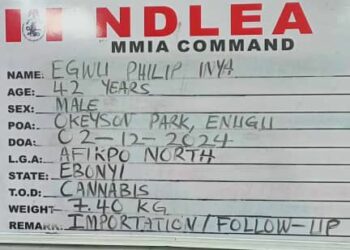 NDLEA
MMIA COMMAND
NAME: EGWU PHILIP INYA
AGE: 42 YEARS
SEX: MALE
POA: OKEYSON PARK, ENUGU
DOA: 02-12-2024
L.G.A: AFIKPO NORTH
STATE: EBONYI
T.O.D: CANNABIS
WEIGHT- 7.40 KG
REMARK: IMPORTATION/FOLLOW-UP